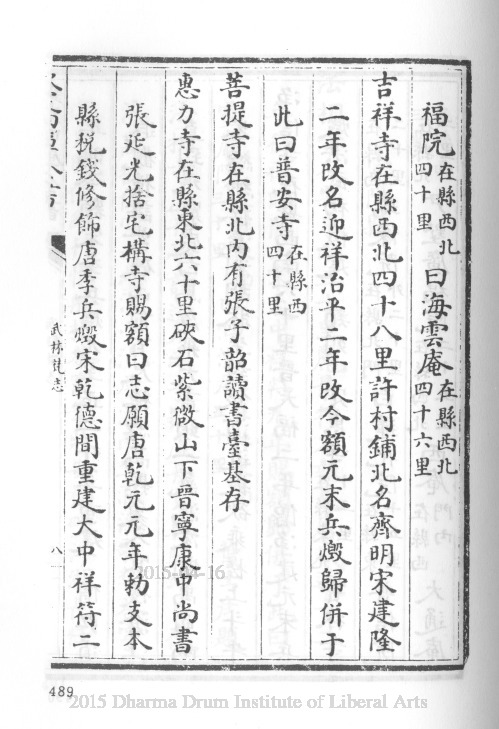 福院在縣西北四十里曰海雲庵在縣西北四十六里
吉祥寺在縣西北四十八里許村鋪北名齊明宋建隆
二年改名迎祥治平二年改今額元末兵燬歸併于
此曰普安寺在縣西四十里
菩提寺在縣北內有張子韶讀書臺基存
惠力寺在縣東北六十里硤石紫微山下晉寧康中尚書
張延光捨宅構寺賜額曰志願唐乾元元年勑支本
縣稅錢修飾唐季兵燬宋乾德間重建大中祥符二
武林梵志
八
2015-04-16
489
2015 Dharma Drum Institute of Liberal Arts